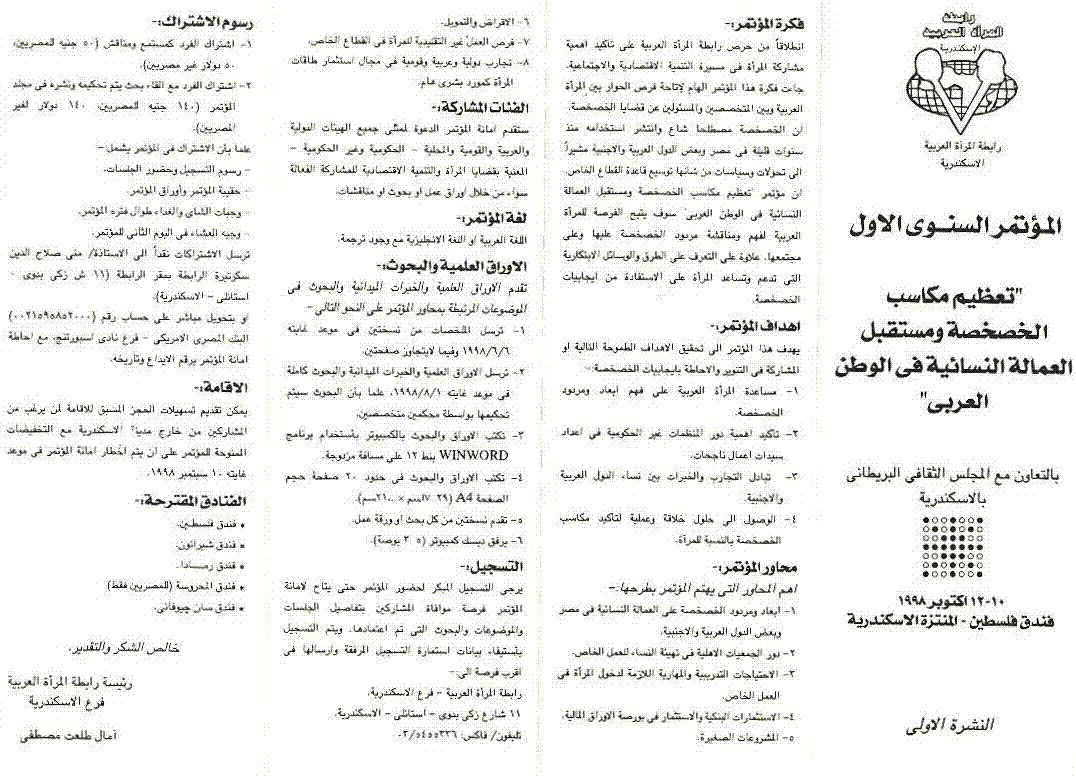 رابطة
المرأة العربية
الاسكندرية
رابطة المرأة العربية
الاسكندرية
المؤتمر السنوى الاول
"تعظيم مكاسب
الخصخصة ومستقبل
العمالة النسائية فى الوطن
العربى"
بالتعاون مع المجلس الثقافى البريطانى
بالاسكندرية
١٠-١٢ اكتوبر ١٩٩٨
فندق فلسطين - المنتزة الاسكندرية
النشرة الاولى
فكرة المؤتمر:-
انطلاقاً من حرص رابطة المرأة العربية على تاكيد اهمية
مشاركة المرأة فى مسيرة التنمية الاقتصادية والاجتماعية.
جاءت فكرة هذا المؤتمر الهام لإتاحة فرص الحوار بين المرأة
العربية وبين المتخصصين والمسئولين عن قضايا الخصخصة.
ان الخصخصة مصطلحا شاع وانتشر استخدامه منذ
سنوات قليلة فى مصر وبعض الدول العربية والاجنبية مشيراً
الى تحولات وسياسات من شانها توسيع قاعدة القطاع الخاص.
ان مؤتمر "تعظيم مكاسب الخصخصة ومستقبل العمالة
النسائية فى الوطن العربى" سوف يتيح الفرصة للمرأة
العربية لفهم ومناقشة مردود الخصخصة عليها وعلى
مجتمعها. علاوة على التعرف على الطرق والوسائل الابتكارية
التى تدعم وتساعد المرأة على الاستفادة من ايجابيات
الخصخصة.
اهداف المؤتمر:-
يهدف هذا المؤتمر الى تحقيق الاهداف الطموحة التالية او
المشاركة فى التنوير والاحاطة بايجابيات الخصخصة:-
١- مساعدة المرأة العربية على فهم ابعاد ومردود
الخصخصة.
٢- تاكيد اهمية دور المنظمات غير الحكومية فى اعداد
سيدات اعمال ناجحات.
٣- تبادل التجارب والخبرات بين نساء الدول العربية
والاجنبية.
٤- الوصول الى حلول خلاقة وعملية لتاكيد مكاسب
الخصخصة بالنسبة للمرأة.
محاور المؤتمر:-
اهم المحاور التى يهتم المؤتمر بطرحها:-
١- ابعاد ومردود الخصخصة على العمالة النسائية فى مصر
وبعض الدول العربية والاجنبية.
٢- دور الجمعيات الاهلية فى تهيئة النساء للعمل الخاص.
٣- الاحتياجات التدريبية والمهارية اللازمة لدخول المرأة فى
العمل الخاص.
٤- الاستثمارات البنكية والاستثمار فى بورصة الاوراق المالية.
٥- المشروعات الصغيرة.
٦- الاقراض والتمويل.
٧- فرص العمل غير التقليدية للمرأة فى القطاع الخاص.
٨- تجارب دولية وعربية وقومية فى مجال استثمار طاقات
المرأة كمورد بشرى هام.
الفئات المشاركة:-
ستقدم امانة المؤتمر الدعوة لممثلى جميع الهيئات الدولية
والعربية والقومية والمحلية - الحكومية وغير الحكومية -
المعنية بقضايا المرأة والتنمية الاقتصادية للمشاركة الفعالة
سواء من خلال اوراق عمل او بحوث او مناقشات.
لغة المؤتمر:-
اللغة العربية او اللغة الانجليزية مع وجود ترجمة.
الاوراق العلمية والبحوث:-
تقدم الاوراق العلمية والخبرات الميدانية والبحوث فى
الموضوعات المرتبطة بمحاور المؤتمر على النحو التالى:-
١- ترسل الملخصات من نسختين فى موعد غايته
١٩٩٨/٦/٦ وفيما لايتجاوز صفحتين.
٢- ترسل الاوراق العلمية والخبرات الميدانية والبحوث كاملة
فى موعد غايته ١٩٩٨/٨/١، علما بأن البحوث سيتم
تحكيمها بواسطة محكمين متخصصين.
٣- تكتب الاوراق والبحوث بالكمبيوتر بأستخدام برنامج
WINWORD بنط ١٢ على مسافة مزدوجة.
٤- تكتب الاوراق والبحوث فى حدود ٢٠ صفحة حجم
الصفحة A4
٥- تقدم نسختين من كل بحث او ورقة عمل.
٦- يرفق ديسك كمبيوتر (٣.٥ بوصة).
التسجيل:-
يرجى التسجيل المبكر لحضور المؤتمر حتى يتاح لامانة
المؤتمر فرصة موافاة المشاركين بتفاصيل الجلسات
والموضوعات والبحوث التى تم اعتمادها. ويتم التسجيل
بأستيفاء بيانات استمارة التسجيل المرفقة وارسالها فى
اقرب فرصة الى:-
رابطة المرأة العربية - فرع الاسكندرية.
١١ شارع زكى بنوى - استانلى - الاسكندرية.
تليفون/ فاكس: ٠٣/٥٤٥٥٣٣٦
رسوم الاشتراك:-
١- اشتراك الفرد كمستمع ومناقش (٥٠ جنيه للمصريين،
٥٠ دولار غير مصريين).
٢- اشتراك الفرد مع القاء بحث يتم تحكيمه ونشره فى مجلد
المؤتمر (١٤٠ جنيه للمصريين، ١٤٠ دولار لغير
المصريين).
علما بأن الاشتراك فى المؤتمر يشمل:-
- رسوم التسجيل وحضور الجلسات.
- حقيبة المؤتمر وأوراق المؤتمر.
- وجبات الشاى والغداء طوال فتره المؤتمر.
- وجبه العشاء فى اليوم الثانى للمؤتمر.
ترسل الاشتراكات نقداً الى الاستاذة/ منى صلاح الدين
سكرتيرة الرابطة بمقر الرابطة (١١ ش زكى بنوى -
استانلى - الاسكندرية).
او بتحويل مباشر على حساب رقم (٠٠٢١٥٩٥٨٥٢٠٠٠)
البنك المصرى الامريكى - فرع نادى اسبورتنج، مع احاطة
امانة المؤتمر برقم الايداع وتاريخه.
الاقامة:-
يمكن تقديم تسهيلات الحجز المسبق للاقامة لمن يرغب من
المشاركين من خارج مدينة الاسكندرية مع التخفيضات
الممنوحة للمؤتمر على ان يتم اخطار امانة المؤتمر فى موعد
غايته ١٠ سبتمبر ١٩٩٨.
الفنادق المقترحة:-
* فندق فلسطين.
* فندق شيراتون.
* فندق رمسادا.
* فندق المحروسة (للمصريين فقط)
* فندق سان جيوفانى.
خالص الشكر والتقدير،
رئيسة رابطة المرأة العربية
فرع الاسكندرية
آمال طلعت مصطفى